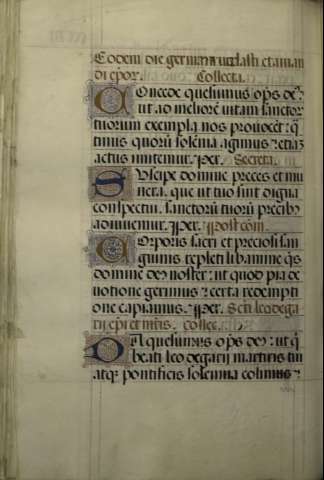 Eodem die germani uedasti et aman
di epor. Collecta.
Concede quesumus ops deꝰ
ut ad meliorē uitam sanctor
tuorum exempla nos prouocēt: q̄
tinus quorū solēnia agimus ⁊ etiaʒ
actus imitemur. Per. Secreta.
Suscipe domine preces et mu
nera. que ut tuo sint digna
conspectui. sanctorū tuorū precibꝫ
adiuuemur. Per. Post cōm.
Corporis sacri et preciosi san
guinis repleti libamine q̄s
domine deꝰ noster: ut quod pia de
uotione gerimus ⁊ certa redempti
one capiamus. Per. Scti leodega
rii epi et mrīs. Collec.
Da quesumus ops deꝰ: ut q̄
beati leodegarii martiris tui
atqꝫ pontificis solemnia colimus